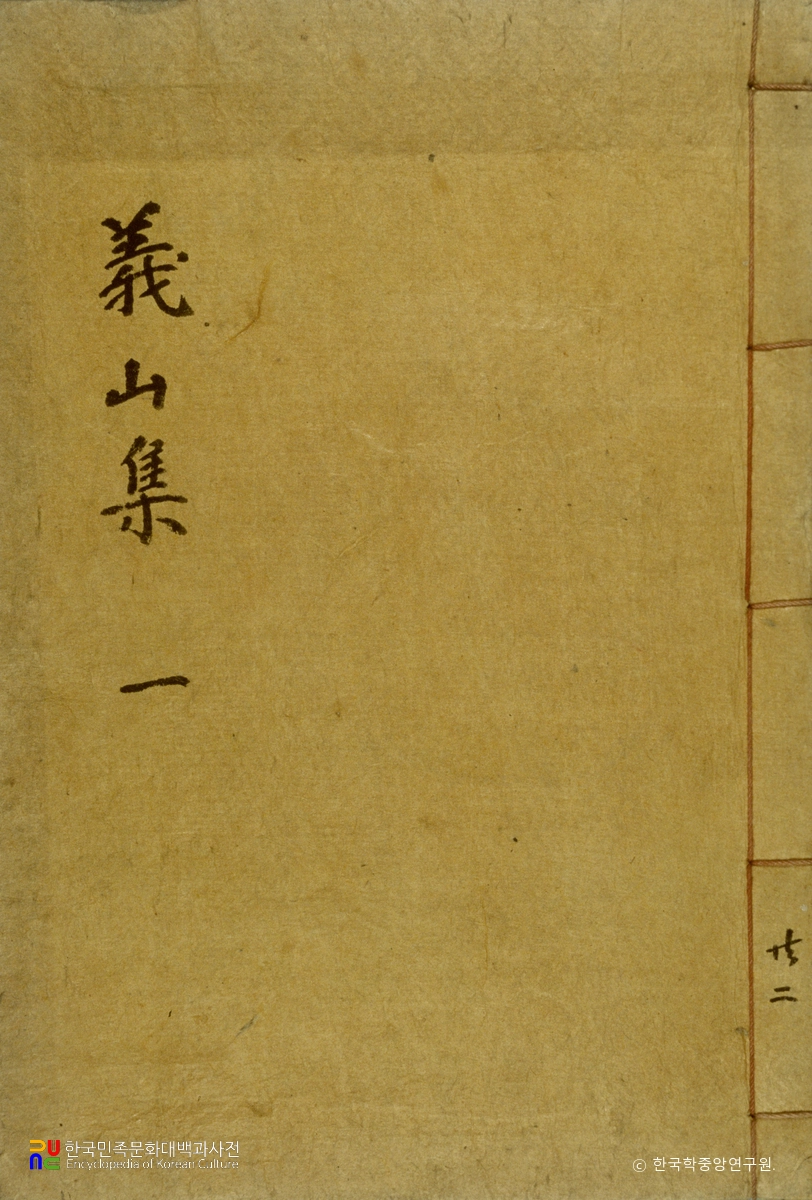 義山集 一
共二
한국민족문화대백과사전
Encyclopedia of Korean Culture
ⓒ 한국학중앙연구원.